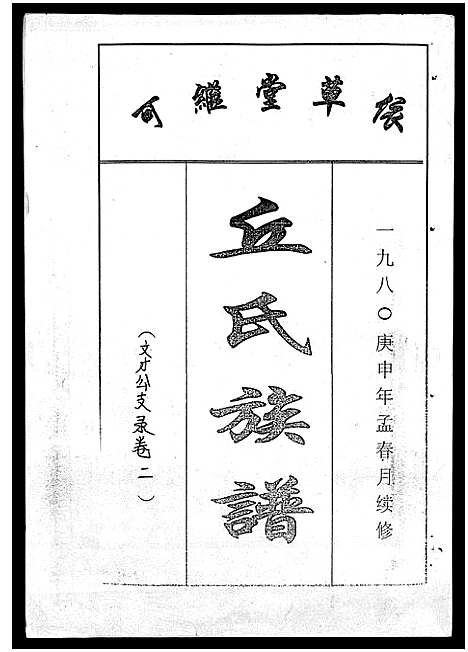 草堂
一九八〇庚申年孟春月续修
丘氏族譜
（文才公支录卷二）